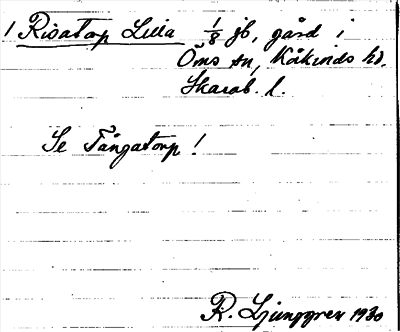 1 Risatorp Lilla 1/8 jb, gård i
Öms sn, Kåkinds hd.
Skarab. l.
Se Tångatorp!
R. Ljunggren 1930